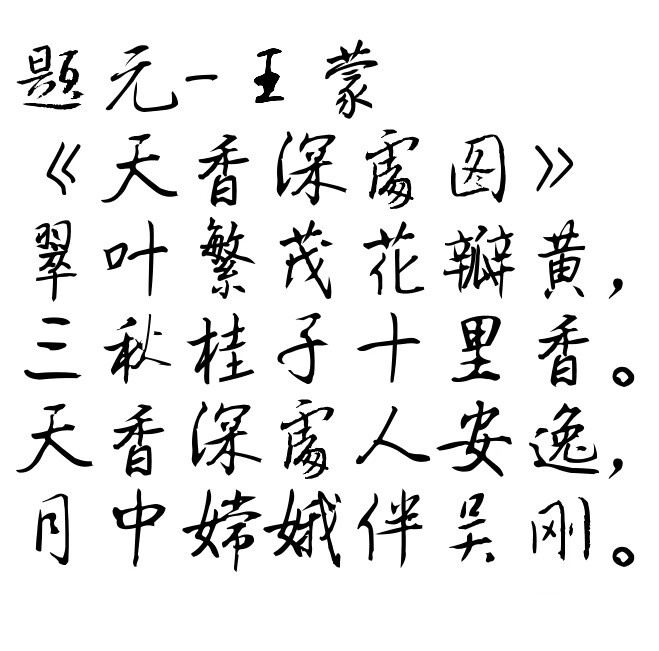 题元-王蒙
《天香深處图》
翠叶繁茂花瓣黄，
三秋桂子十里香。
天香深處人安逸，
月中嫦娥伴吴刚。